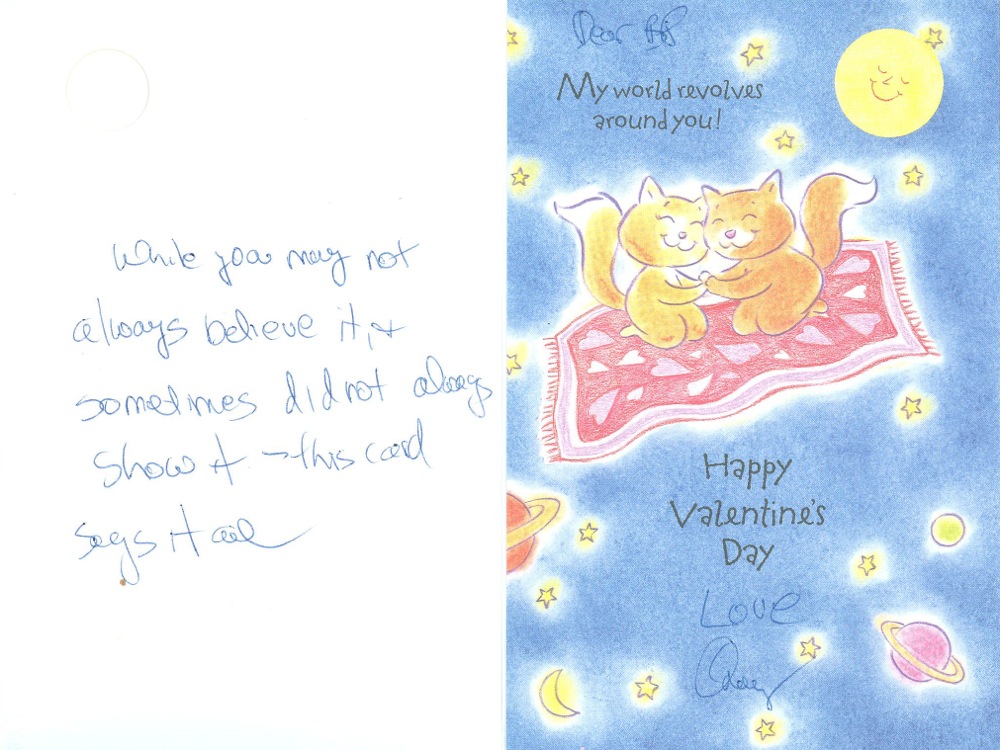 While you may not
always believe it, +
sometimes did not always
show it - this card
says it all
Dear
My world revolves
around you!
Happy
Valentine's
Day
Love